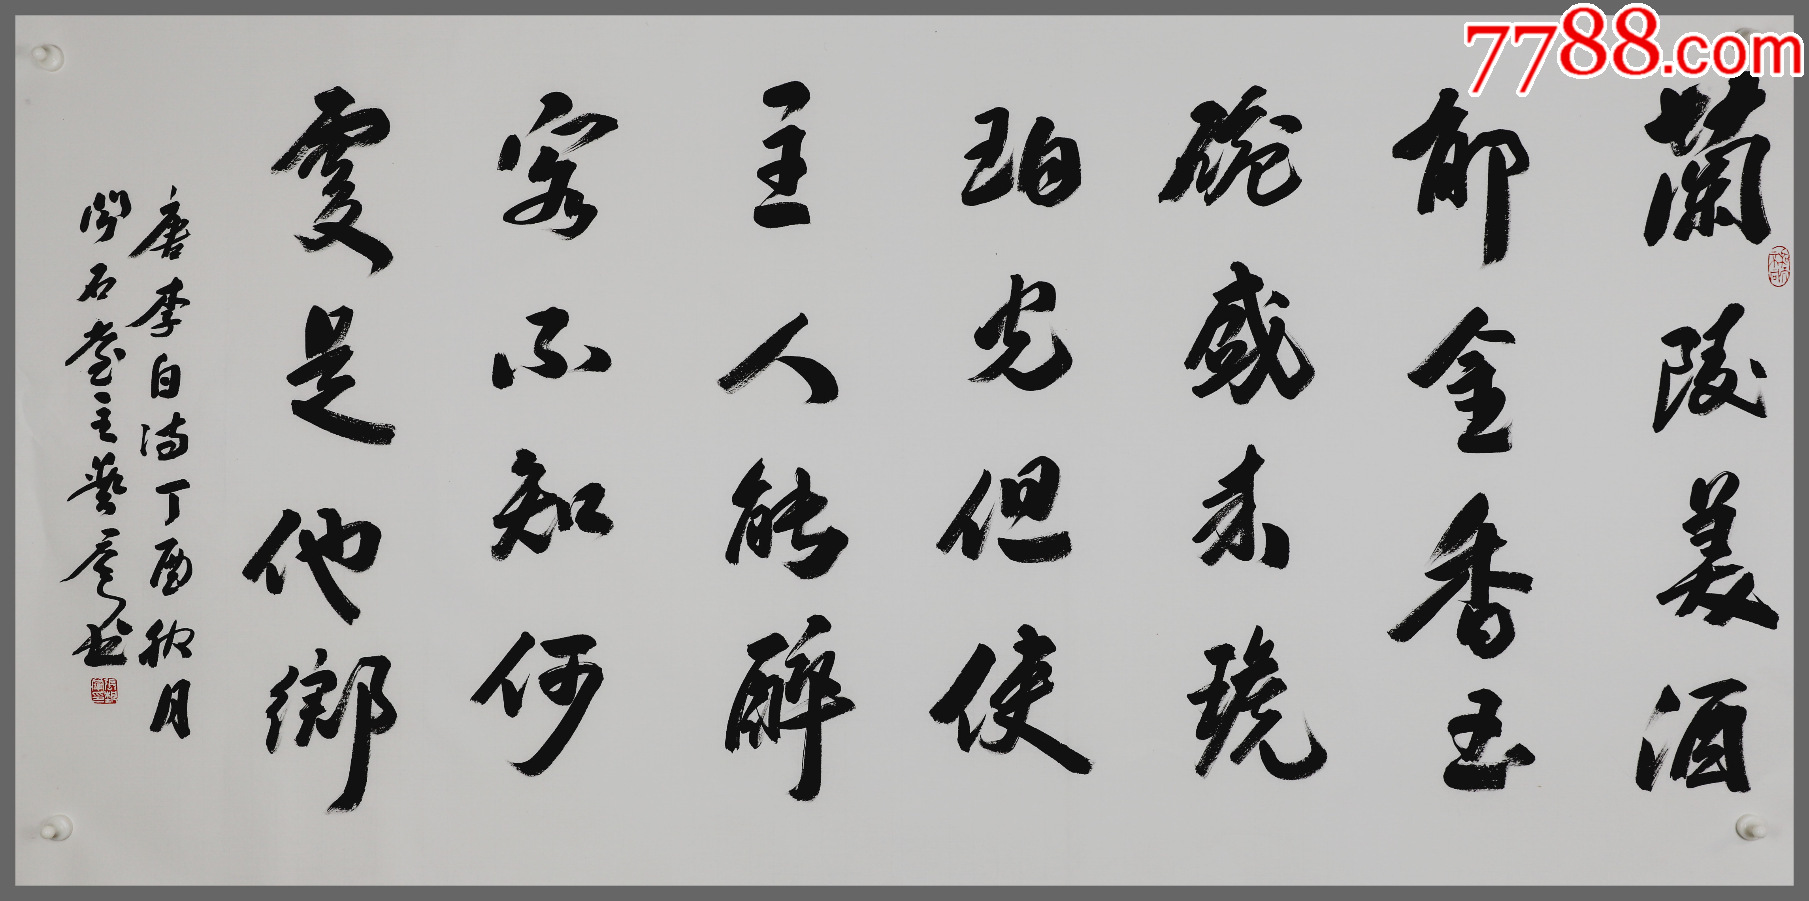 7788.com
蘭陵美酒
郁金香玉
碗盛来琥
珀光但使
主人能醉
客不知何
處是他鄉
唐李白诗丁酉秋月
石主书